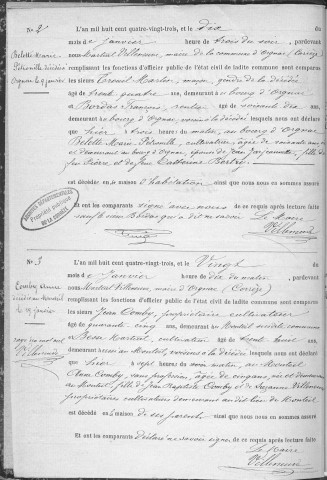 No 2
Belotte Marie
Pétronille décédée
Orgnac le 9 janvier
L'an mil huit cent quatre-vingt-trois, et le dix du
mois de janvier heures de trois du soir, pardevant
nous Martial Villemeur, maire de la commune d'Orgnac (Corrèze)
remplissant les fonctions d'officier public de l'état civil de ladite commune sont comparus
les sieurs Martin, maçon, gendre de la décédée
âgé de trente quatre ans, demeurant au bourg d'Orgnac et
Bordas François, rentier âgé de soixante dix ans,
demeurant au bourg d'Orgnac, voisin de la décédée lesquels nous ont déclaré
que hier à trois heures du matin, au bourg d'Orgnac
Belotte Marie Pétronille, cultivatrice, âgée de soixante ans
et demeurant au bourg d'Orgnac, épouse de Jean fille de
Pierre, et de Catherine
est décédée en sa maison d'habitation ainsi que nous nous en sommes assuré
Et ont les comparants signé avec nous de ce requis après lecture faite
sauf Bordas qui a dit ne savoir Le Maire
Villemeur
ARCHIVES DÉPARTEMENTALES
Propriété publique
DE LA CORRÈZE
No 3
Comby Anne
décédée au Monteil
le 19 janvier
Villemeur
L'an mil huit cent quatre-vingt-trois, et le Vingt du
mois de janvier heures de dix du matin, pardevant
nous Martial Villemeur, maire d'Orgnac (Corrèze)
remplissant les fonctions d'officier public de l'état civil de ladite commune sont comparus
les sieurs Jean Comby, propriétaire cultivateur
âgé de quarante cinq ans, demeurant au Monteil susdite commune
et Martial, cultivateur âgé de trente huit ans,
demeurant au Monteil, voisin de la décédée lesquels nous ont déclaré
que hier à sept heures du soir, au Monteil
Anne Comby, sans profession, âgée de cinq ans, née et demeurant
au Monteil, fille de Jean Baptiste Comby et de Suzanne Villemeur
propriétaires cultivateurs demeurant audit lieu du Monteil
est décédée en la maison de ses parents ainsi que nous nous en sommes assuré
Et ont les comparants déclaré ne savoir signer, de ce requis après lecture faite
Le Maire
Villemeur